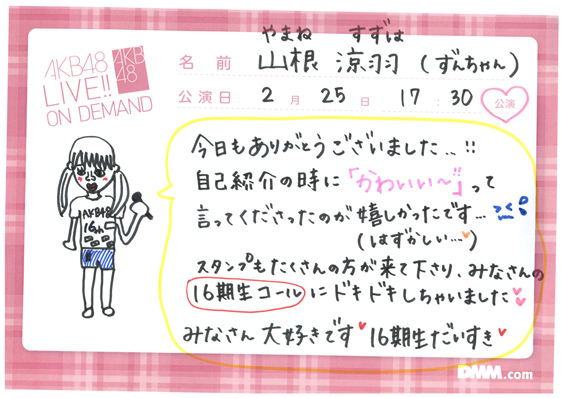 AKB48
LIVE!!
ON DEMAND
AKB
48
やまね すずは
名前 山根 涼羽 (ずんちゃん)
公演日 2月 25日 17:30 公演
今日もありがとうございました…!!
自己紹介の時に「かわいい〜!!」って
言ってくださったのが嬉しかったです…
(はずかしい…)
スタンプもたくさんの方が来て下さり、みなさんの
16期生コールにドキドキしちゃいました
みなさん大好きです 16期生だいすき
AKB48
16th
DMM.com